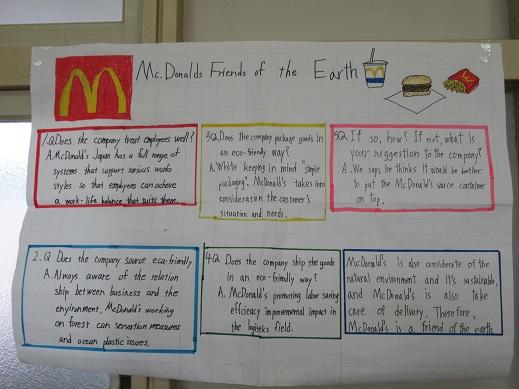 Mc.Donalds Friends of the Earth
1.Q.Does the company treat employees well?
A.McDonald's Japan has a full range of
systems that support various works
styles so that employees can achieve
a work-life balance that suits them.
2.Q Does the company source eca-friendly
A.Always aware of the relation
ship between business and the
environment, McDonald's working
on forest can servation measures
and ocean plastic issues.
3Q.Does the company package goods in
an eco-friendly way?
A.White keeping in mind "simple
packaging", McDonald's takes into
consideration the customer's
situation and needs.
4Q. Does the company ship the goods
in an eco-friendly way?
A. McDonald's promoting labor saving
efficiency improvemental impact in
the logiseks field.
5Q. If so, how? If not, what is
your suggestion to the company?
A. We says, he thinks It would be better
to put the McDonald's sauce container
on Top.
McDonald's is also considerate of the
natural environment and it's sustainable,
and McDonald's is also take
care of delivery. Therefore,
McDonald's is a friend of the earth